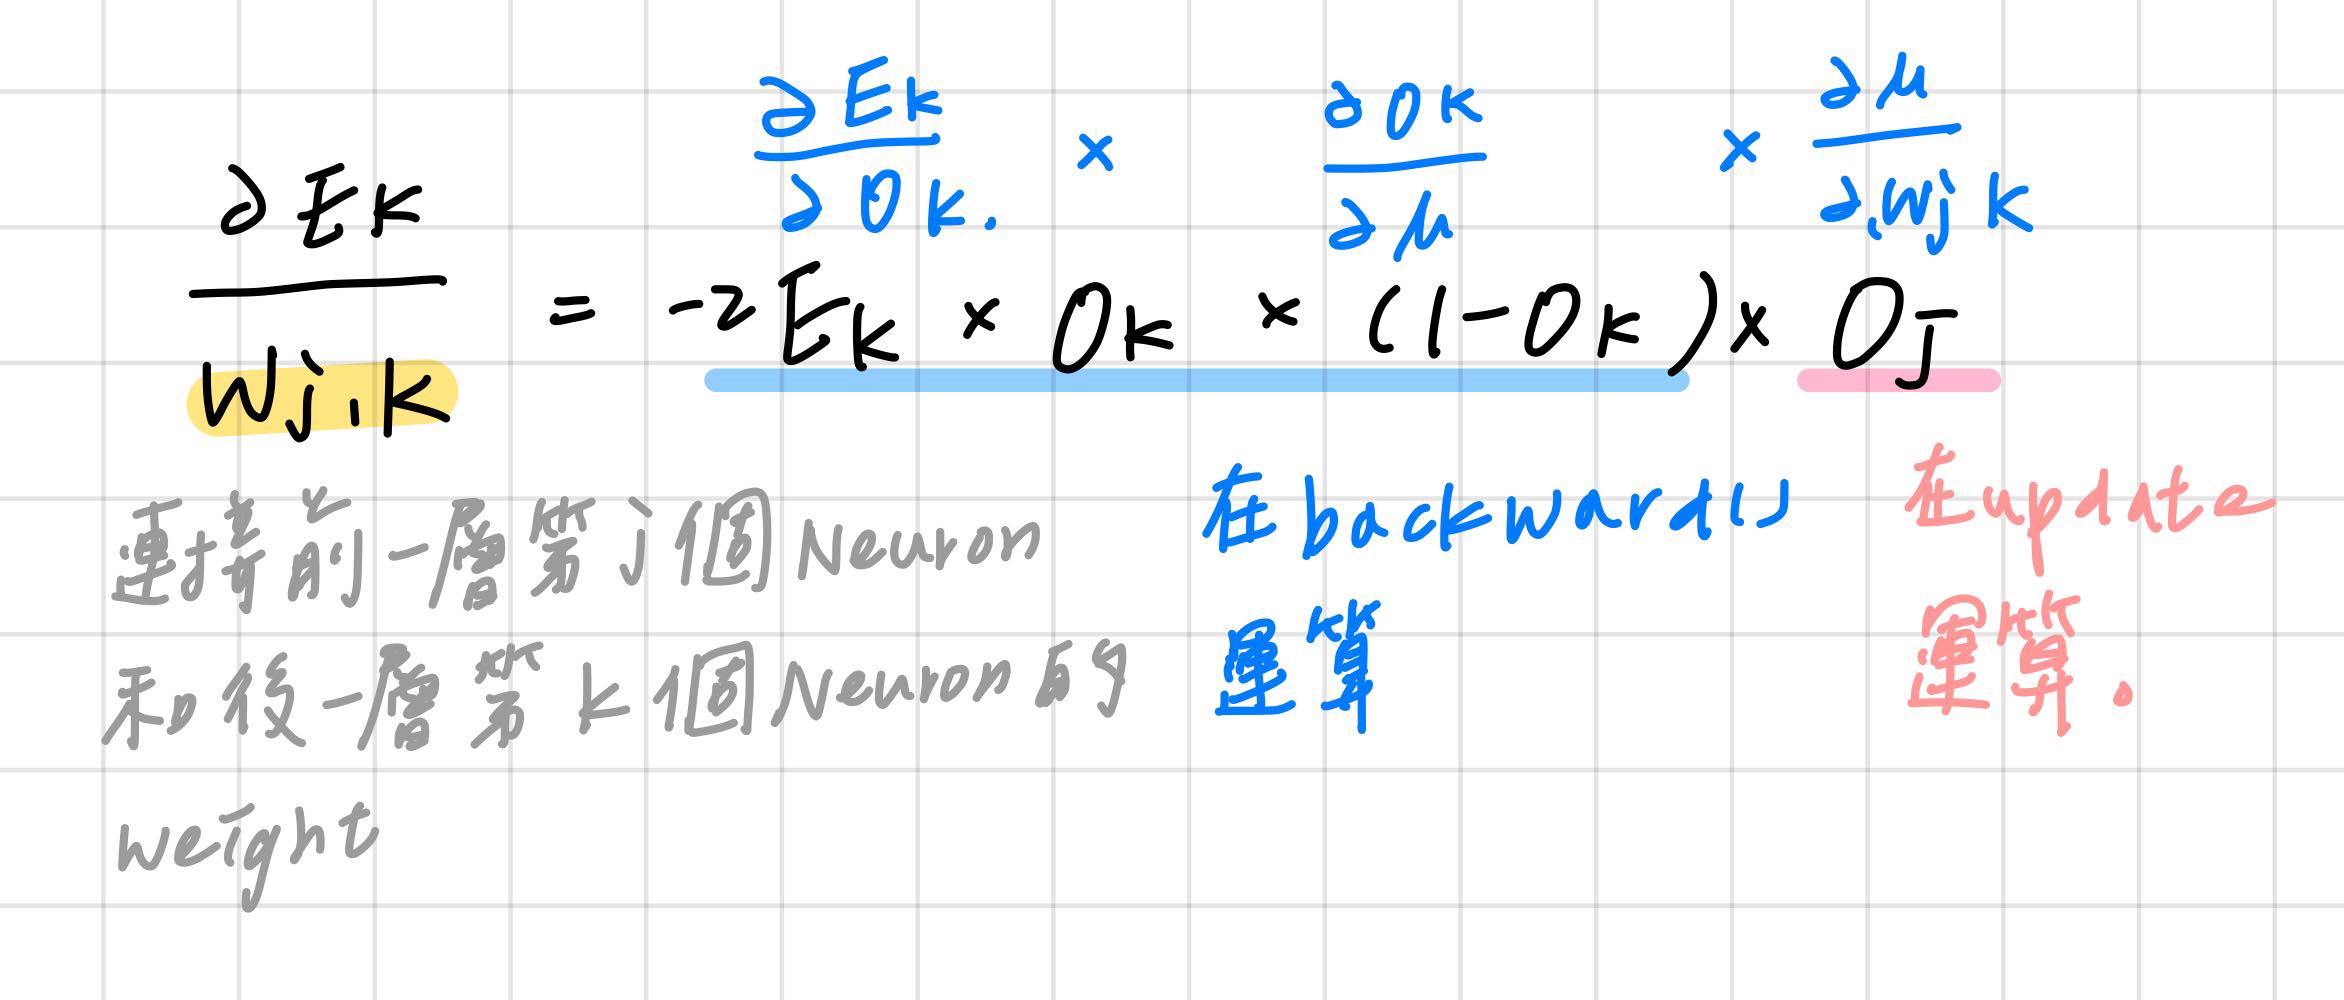 ∂Ek/∂Ok. × ∂Ok/∂μ × ∂μ/∂wjk
∂Ek/Wj,k = -2Ek × Ok × (1-Ok) × Oj
連接前一層第j個Neuron
和後一層第k個Neuron的
weight
在backwards()
運算
在update
運算。